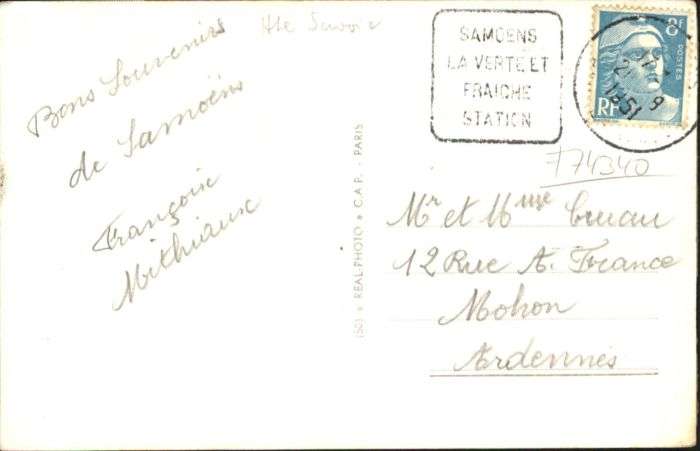 Hte Savoie
Bons Souvenirs
de Samoëns
Françoise
Mithiaux
SAMOENS
LA VERTE ET
FRAICHE
STATION
8f
POSTES
RF
1951
774340
1503 ● REAL-PHOTO ● C.A.P. - PARIS
Mr et Mme Cruau
12 Rue A. France
Mohon
Ardennes